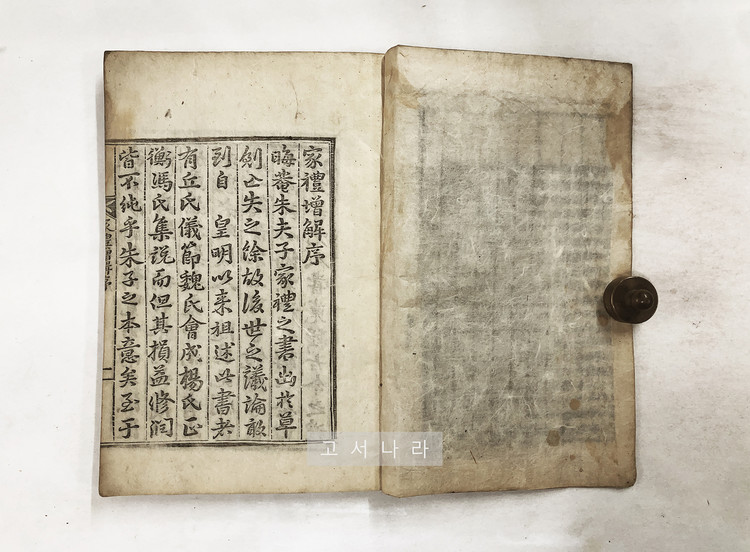 家禮增解序
晦菴朱夫子家禮之書出於草
創亡失之餘故後世之議論敢
到自 皇明以來祖述此書者
有丘氏儀節魏氏會成楊氏正
衡馮氏集說而但其損益修潤
皆不純乎朱子之本意矣至于
고서나라